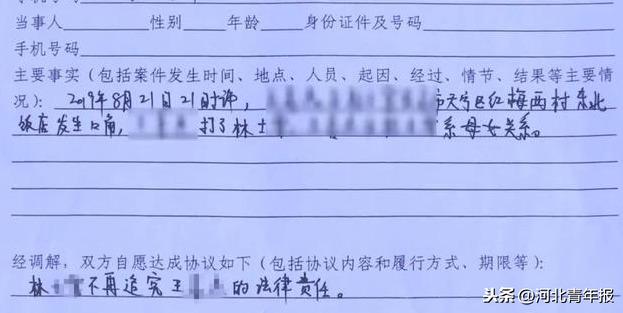 当事人 性别 年龄 身份证件及号码
手机号码
主要事实（包括案件发生时间、地点、人员、起因、经过、情节、结果等主要情
况）： 2019年8月21日21时许， 市天宁区红梅西村东北
饭店发生口角， 打了林 系母女关系。
经调解，双方自愿达成协议如下（包括协议内容和履行方式、期限等）：
林 不再追究王 的法律责任。
头条@河北青年报